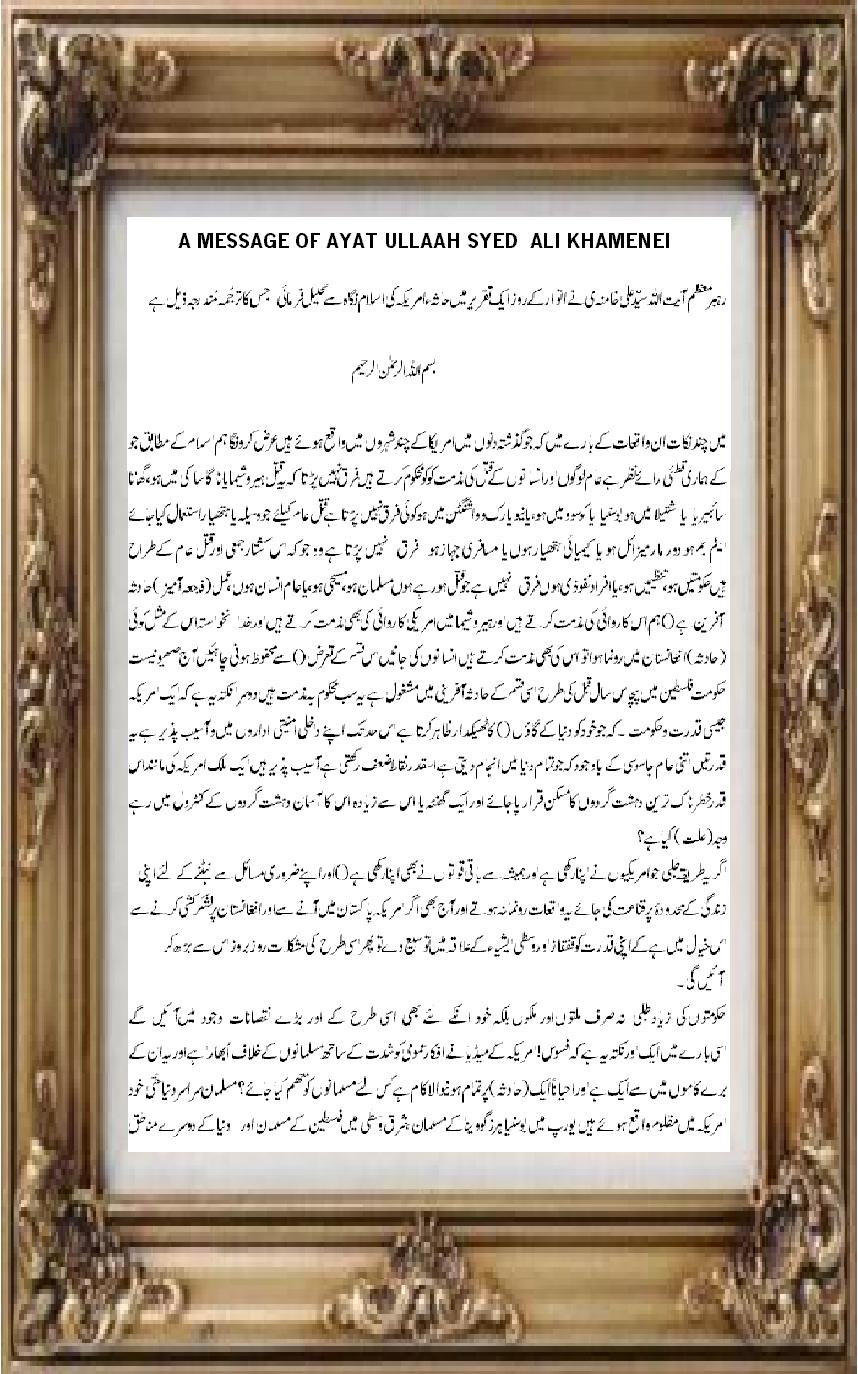 A MESSAGE OF AYAT ULLAAH SYED ALI KHAMENEI
رہبر معظم آیت اللہ سیّد علی خامنہ ی نے اتوار کے روز ایک تقریر میں حادثہ امریکہ کی اسلام نگاہ سے تحلیل فرمائی جس کا ترجمہ مندرجہ ذیل ہے
بسم اللہ الرحمٰن الرحیم
میں چند نکات ان واقعات کے بارے میں کہ جو گذشتہ دنوں میں امریکا کے چند شہروں میں واقع ہوئے ہیں عرض کرونگا ہم اسلام کے مطابق جو
کے ہماری قطعی رائے نظر ہے عام لوگوں اور انسانوں کے قتل کی مذمت کو محکوم کرتے ہیں فرق نہیں پڑتا کہ یہ قتل ہیروشیما یا ناگاساکی میں ہو، یا
سائبیریا یا شتیلا میں ہو بوسنیا یا کوسوو میں ہو، یا نیو یارک و واشنگٹن میں ہو کوئی فرق نہیں پڑتا ہے قتل عام کیلئے جو وسیلہ یا ہتھیار استعمال کیا جائے
ایٹم بم ہو دور مار میزائل ہو یا کیمیائی ہتھیار ہوں یا مسافری جہاز ہو فرق نہیں پڑتا ہے وہ جو کہ اس کشتار جمعی اور قتل عام کے طراح
ہیں حکومتیں ہو، تنظیمیں ہو، یا افراد نفوذی ہوں فرق نہیں ہے جو قتل ہو رہے ہوں مسلمان ہو، مسیحی ہو، یا عام انسان ہوں، عمل (فجعہ آمیز) حادثہ
آفرین ہے () ہم اس کاروائی کی مذمت کرتے ہیں اور ہیروشیما میں امریکی کاروائی کی بھی مذمت کرتے ہیں اور خدا نخواستہ اس کے مثل کوئی
(حادثہ) افغانستان میں رونما ہوا تو اس کی بھی مذمت کرتے ہیں انسانوں کی جانیں اس قسم کے تعرض () سے محفوظ ہونی چاہئیں آج صیہونیست
حکومت فلسطین میں پچاس سال قبل کی طرح اسی قسم کے حادثہ آفرینی میں مشغول ہے یہ سب محکوم یہ مذمت ہیں دوسرا نکتہ یہ ہے کہ ایک امریکہ
جیسی قدرت و حکومت ۔ کہ جو خود کو دنیا کے گاؤں () کا ٹھیکیدار ظاہر کرتا ہے اس حد تک اپنے داخلی امنیتی اداروں میں وہ آسیب پذیر ہے یہ
قدرتیں اتنی عام جاسوسی کے باوجود کہ جو تمام دنیا میں انجام دیتی ہے اسقدر نقاط ضعف رکھتی ہے آسیب پذیر ہیں ایک ملک امریکہ کی مانند اس
قدر خطرناک ترین دہشت گردوں کا مسکن قرار پا جائے اور ایک گھنٹہ یا اس سے زیادہ اس کا آسمان دہشت گردوں کے کنٹرول میں رہے
وجہ (علت) کیا ہے؟
اگر یہ طریقہ جو امریکیوں نے اپنا رکھی ہے اور ہمیشہ سے باقی قوتوں نے بھی اپنا رکھی ہے () اور اپنے ضروری مسائل سے نبٹنے کے لئے اپنی
زندگی کے محدودہ پر قناعت کی جائے یہ واقعات رونما نہ ہوتے اور آج بھی اگر امریکہ پاکستان میں آنے سے اور افغانستان پر لشکر کشی کرنے سے
اس خیال میں ہے کے اپنی قدرت کو قفقاز اور وسطی ایشیاء کے علاقہ میں توسیع دے تو پھر اسی طرح کی مشکلات روز بروز اس سے بڑھ کر
آئیں گی ۔
حکومتوں کی زیادہ طلبی نہ صرف ملتوں اور ملکوں بلکہ خود انکے لئے بھی اسی طرح کے اور بڑے نقصانات وجود میں آئیں گے
اسی بارے میں ایک اور نکتہ یہ ہے کہ افسوس! امریکہ کے میڈیا نے افکار عمومی کو شدت کے ساتھ مسلمانوں کے خلاف ابھارا ہے اور یہ ان کے
برے کاموں میں سے ایک ہے اور احیاناً ایک (حادثہ) پر تمام ہونیوالا کام ہے کس لئے مسلمانوں کو متہم کیا جائے؟ مسلمان سراسر دنیا حتیٰ خود
امریکہ میں مظلوم واقع ہوئے ہیں یورپ میں بوسنیا ہرزگووینا کے مسلمان، شرق وسطی میں فلسطین کے مسلمان اور دنیا کے دوسرے مناطق